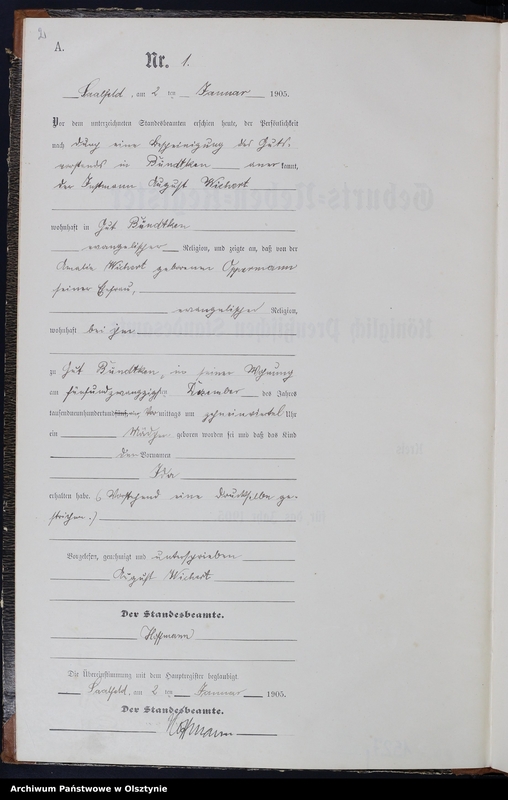 2
A.
Nr. 1.
Saalfeld, am 2 ten Januar 1905.
Vor dem unterzeichneten Standesbeamten erschien heute, der Persönlichkeit
nach durch eine Bescheinigung des Guts-
vorstands in Bündtken anerkannt,
der Instmann August Wichert
wohnhaft in Gut Bündtken
evangelischer Religion, und zeigte an, daß von der
Amalie Wichert geborenen Oppermann
seiner Ehefrau,
evangelischer Religion,
wohnhaft bei ihm
zu Gut Bündtken, in seiner Wohnung
am fünfundzwanzigsten Dezember des Jahres
tausendneunhundert Vor mittags um Uhr
ein Mädchen geboren worden sei und daß das Kind
den Vornamen
Ida
erhalten habe. (Vorstehend eine Druckselbe ge-
strichen.)
Vorgelesen, genehmigt und unterschrieben
August Wichert
Der Standesbeamte.
Hoffmann
Die Übereinstimmung mit dem Hauptregister beglaubigt.
Saalfeld, am 2 ten Januar 1905.
Der Standesbeamte.
Hoffmann
Archiwum Państwowe w Olsztynie